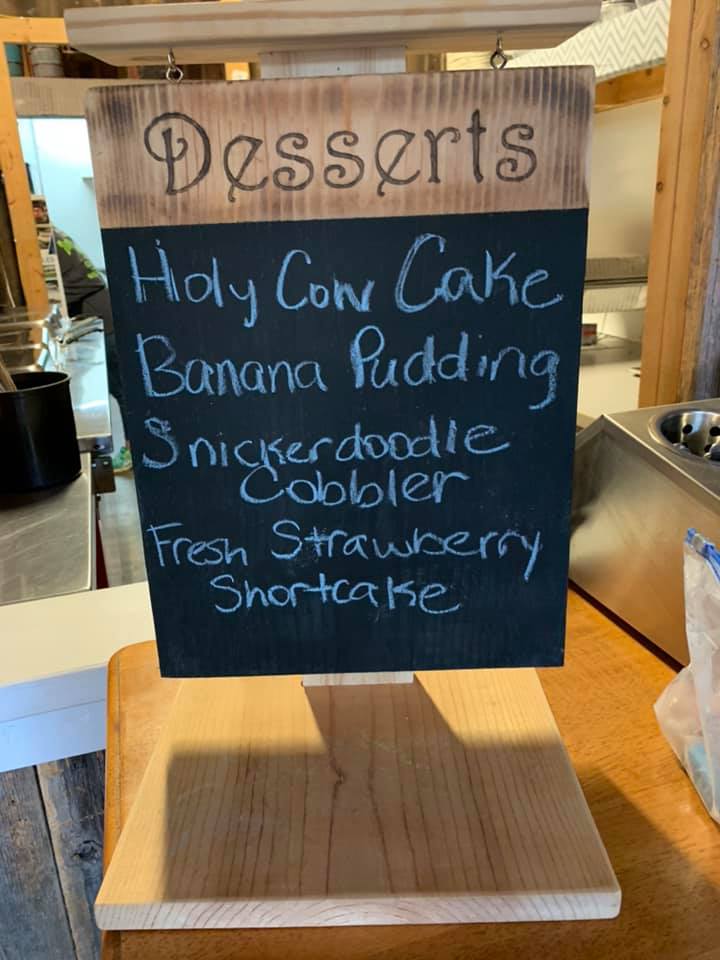 Desserts
Holy Cow Cake
Banana Pudding
Snickerdoodle
Cobbler
Fresh Strawberry
Shortcake